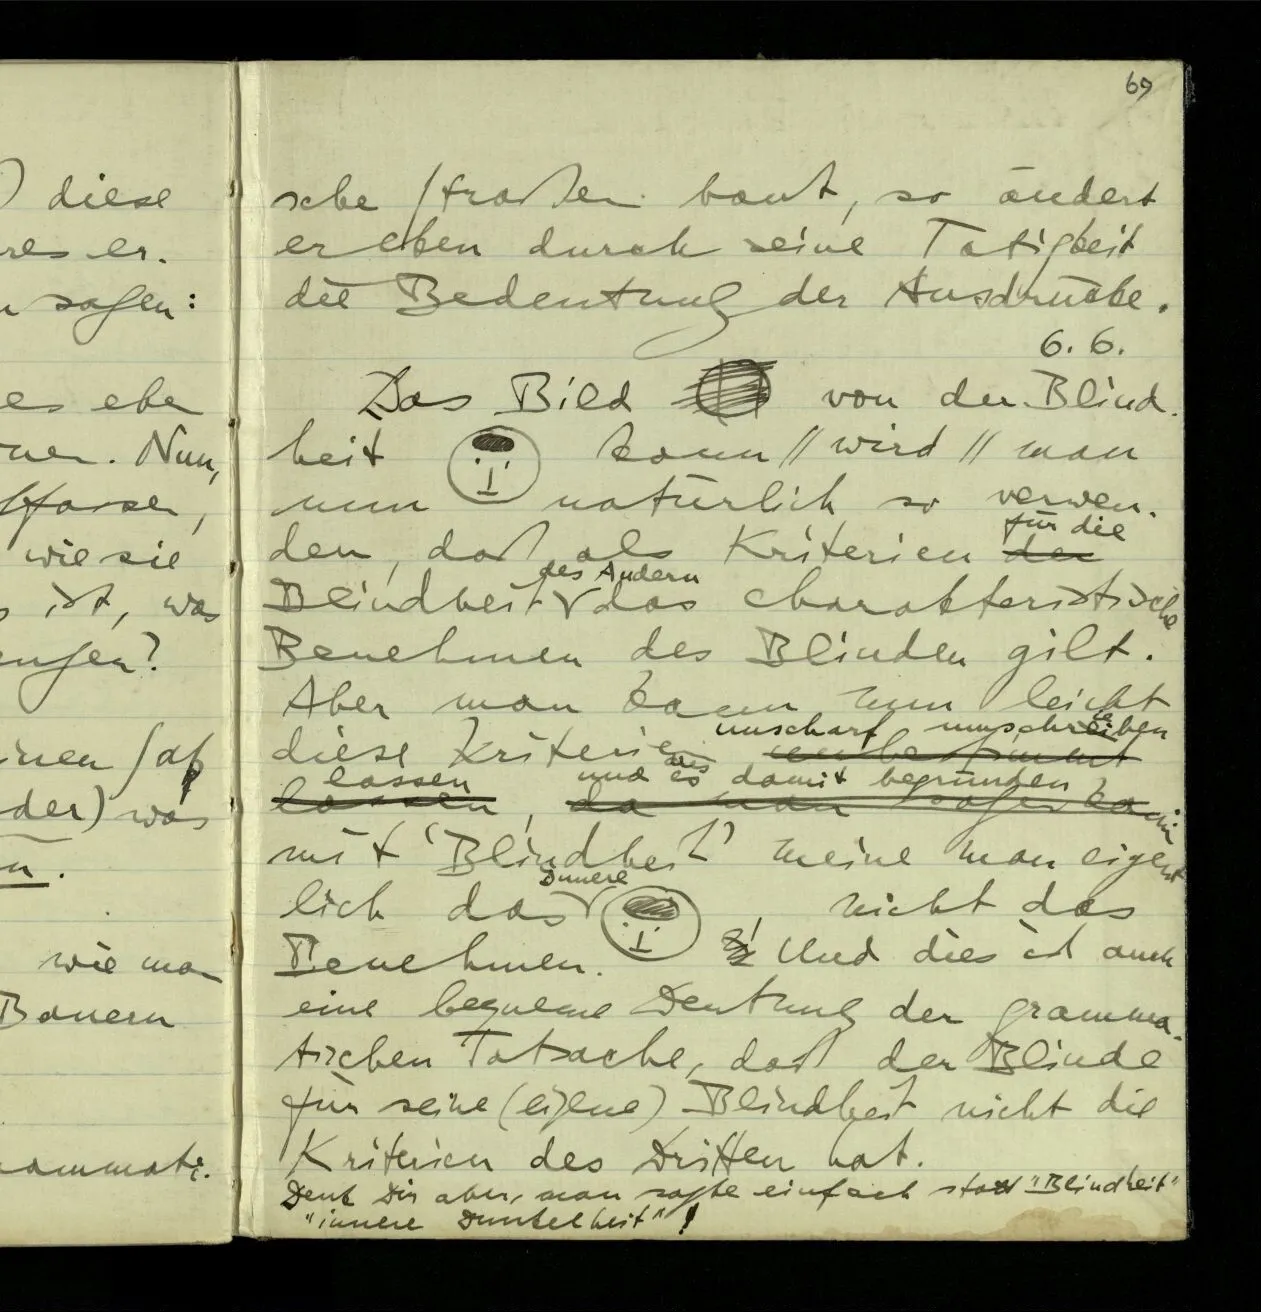 69
) diese
res er.
n sagen:
es ebe
ner. Nun,
wie sie
ist, was
engen?
inen Satz
der) was
n.
wie man
Bauern
rammati-
sche Straßen baut, so ändert
er eben durch seine Tätigkeit
die Bedeutung der Ausdrücke.
6. 6.
Das Bild von der Blind-
heit kann // wird // man
nun natürlich so verwen-
den, daß als Kriterien der
für die
Blindheit das charakteristische
des Andern
Benehmen des Blinden gilt.
Aber man kann nun leicht
unscharf umschreiben
diese Kriterien unbestimmt
lassen und es damit begründen
lassen, da man sagen kann
mit 'Blindheit' meine man eigent-
lich das
innere
, nicht das
Benehmen. Und dies ist auch
eine bequeme Deutung der gramma-
tischen Tatsache, daß der Blinde
für seine (eigene) Blindheit nicht die
Kriterien des Dritten hat.
Denk Dir aber, man sagte einfach statt "Blindheit"
"innere Dunkelheit"!